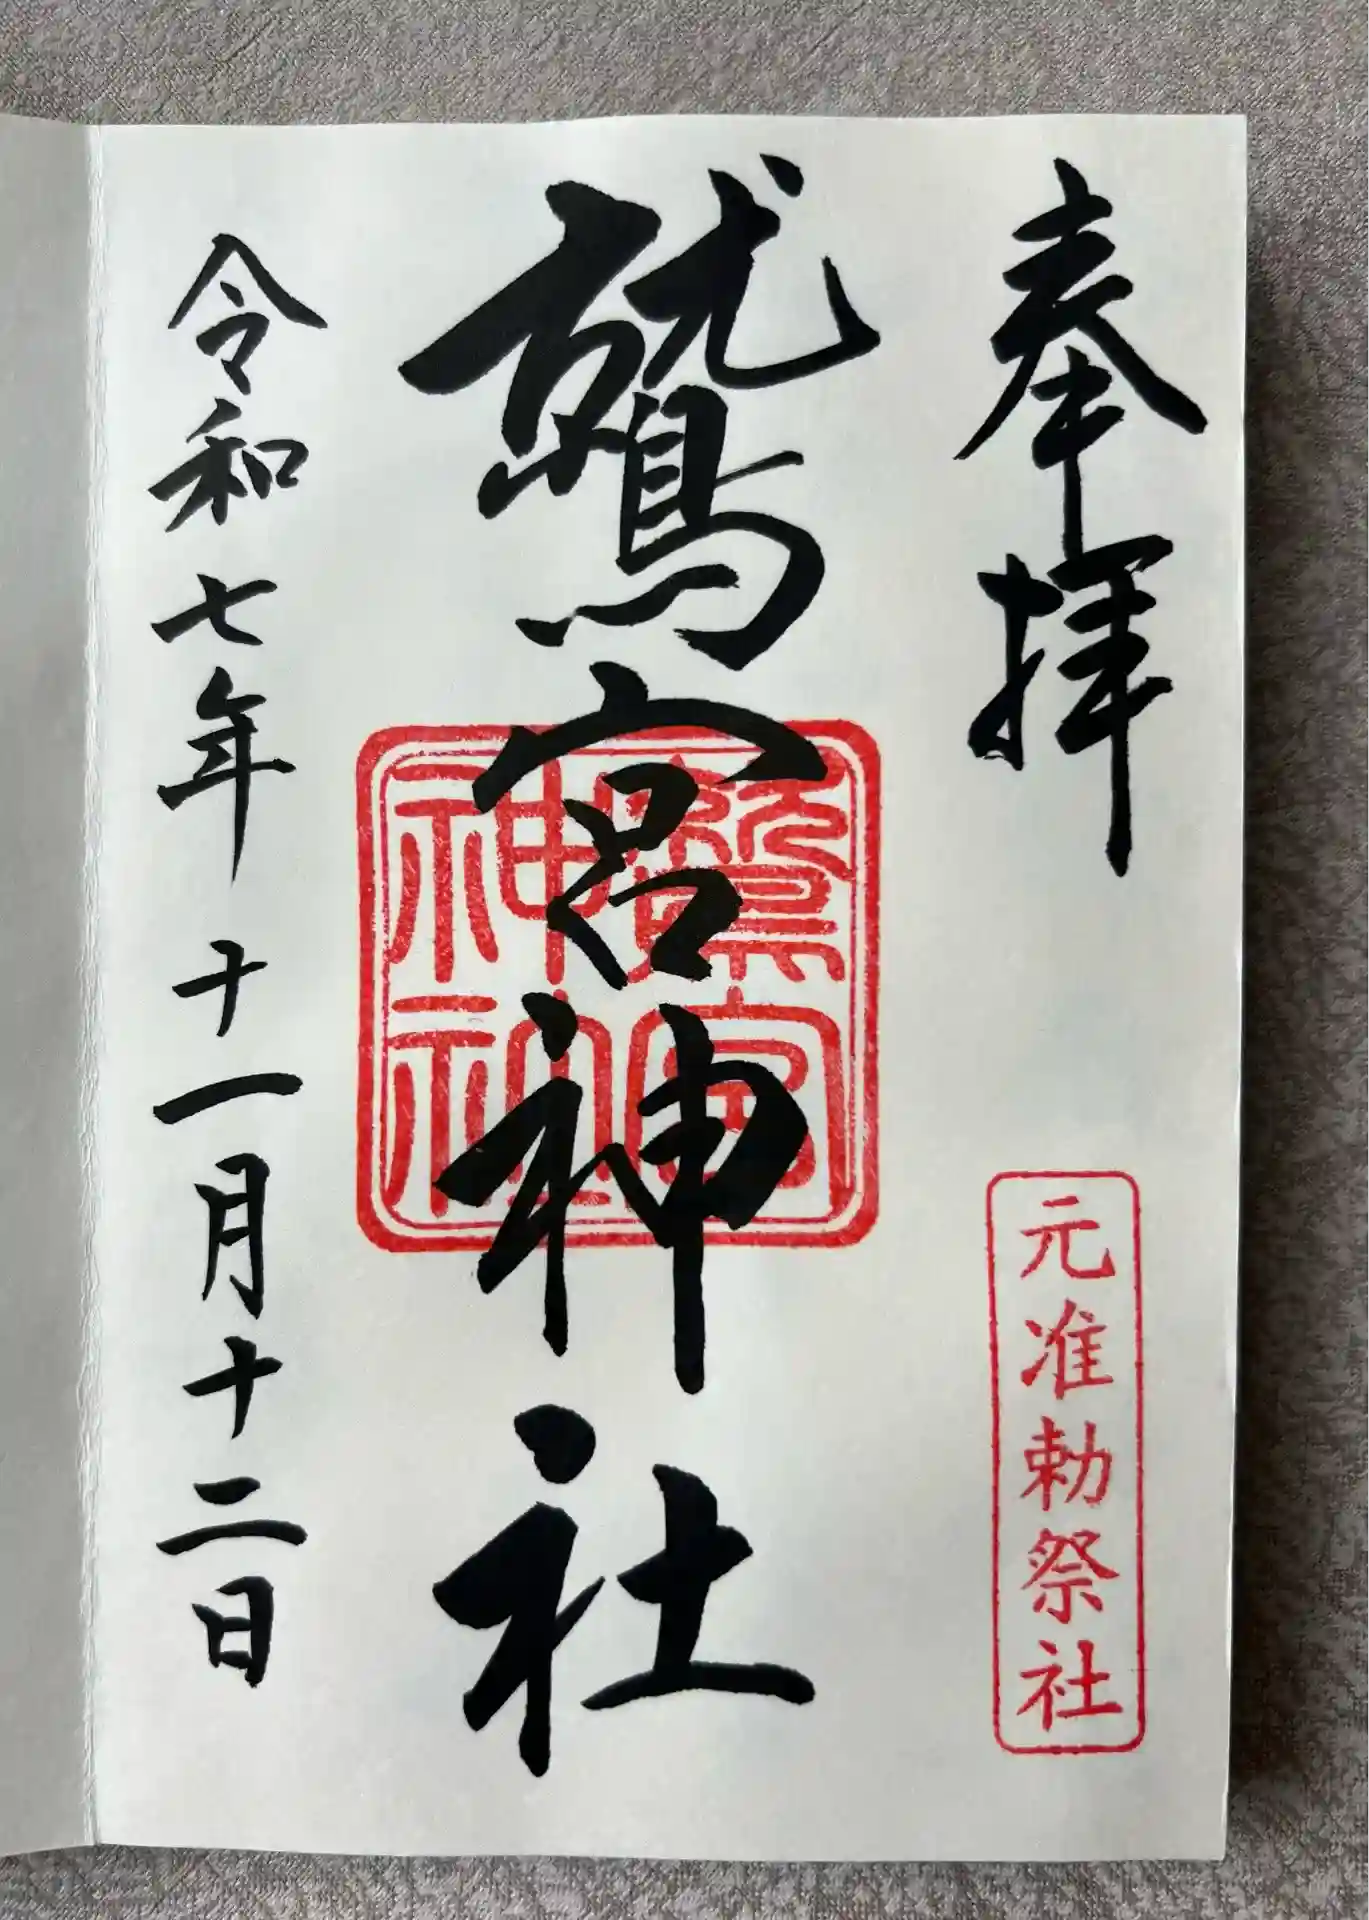 奉拝
元准勅祭社
鷲宮神社
鷲宮神社
令和七年十一月十二日